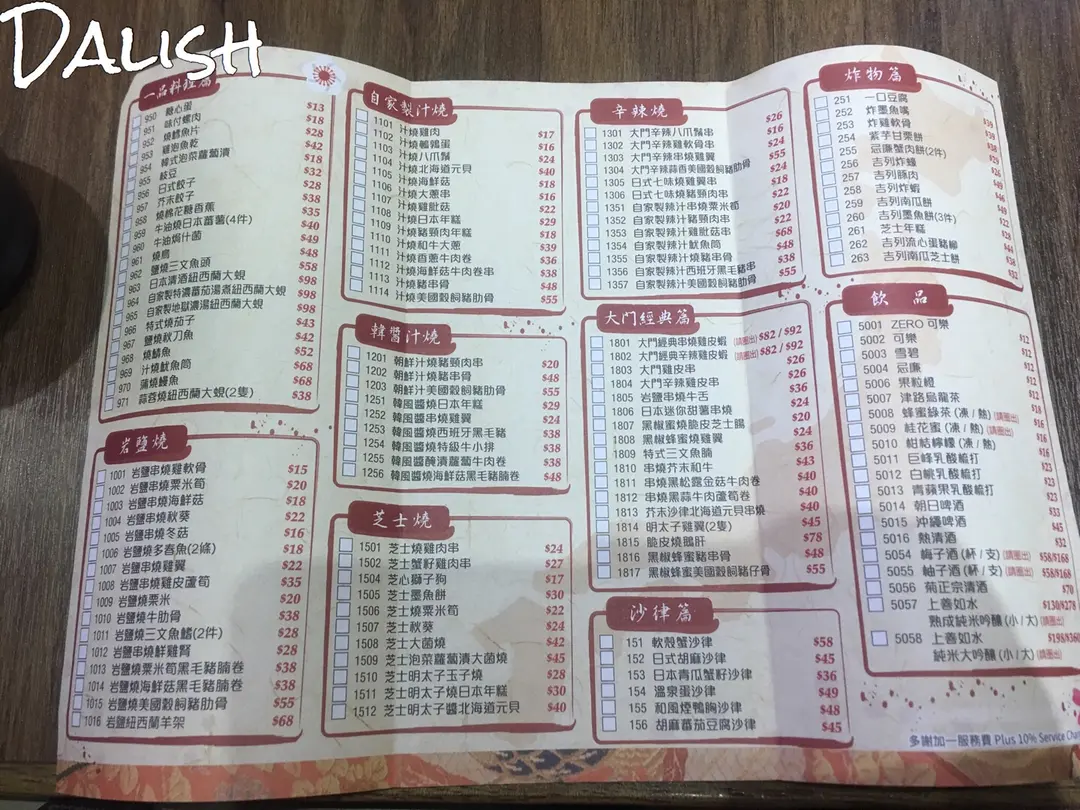 DALISH
一品料理篇
950 糖心蛋 $13
951 味付螺肉 $18
952 燒鱈魚片 $28
953 雞泡魚乾 $42
954 韓式泡菜蘿蔔漬 $18
955 枝豆 $32
956 日式餃子 $28
957 芥末餃子 $38
958 燒棉花糖香蕉 $35
959 牛油燒日本蕃薯(4件) $40
960 牛油焗什菌 $49
961 燒鳥 $48
962 鹽燒三文魚頭 $58
963 日本清酒紐西蘭大蜆 $98
964 自家製特濃蕃茄湯煮紐西蘭大蜆 $98
965 自家製地獄濃湯紐西蘭大蜆 $98
966 特式燒茄子 $43
967 鹽燒秋刀魚 $42
968 燒鯖魚 $52
969 汁燒魷魚筒 $68
970 蒲燒鰻魚 $68
971 蒜蓉燒紐西蘭大蜆(2隻) $38
岩鹽燒
1001 岩鹽串燒雞軟骨 $15
1002 岩鹽串燒粟米筍 $20
1003 岩鹽串燒海鮮菇 $18
1004 岩鹽串燒秋葵 $22
1005 岩鹽串燒冬菇 $16
1006 岩鹽燒多春魚(2條) $18
1007 岩鹽串燒雞翼 $22
1008 岩鹽串燒雞皮蘆筍 $35
1009 岩鹽燒粟米 $20
1010 岩鹽燒牛肋骨 $38
1011 岩鹽燒三文魚鰭(2件) $28
1012 岩鹽串燒雞腎 $28
1013 岩鹽燒粟米筍黑毛豬腩卷 $38
1014 岩鹽燒海鮮菇黑毛豬腩卷 $38
1015 岩鹽燒美國穀飼豬肋骨 $55
1016 岩鹽紐西蘭羊架 $68
自家製汁燒
1101 汁燒雞肉 $17
1102 汁燒鵪鶉蛋 $16
1103 汁燒八爪鬚 $24
1104 汁燒北海道元貝 $40
1105 汁燒海鮮菇 $18
1106 汁燒大蔥串 $16
1107 汁燒雞肶菇 $22
1108 汁燒日本年糕 $29
1109 汁燒豬頸肉年糕 $18
1110 汁燒和牛大蔥 $39
1111 汁燒香蔥牛肉卷 $36
1112 汁燒海鮮菇牛肉卷串 $38
1113 汁燒豬串骨 $48
1114 汁燒美國穀飼豬肋骨 $55
韓醬汁燒
1201 朝鮮汁燒豬頸肉串 $20
1202 朝鮮汁燒豬串骨 $48
1203 朝鮮汁美國穀飼豬肋骨 $55
1251 韓風醬燒日本年糕 $29
1252 韓風醬串燒雞翼 $24
1253 韓風醬燒西班牙黑毛豬 $38
1254 韓風醬燒特級牛小排 $38
1255 韓風醬醃漬蘿蔔牛肉卷 $38
1256 韓風醬燒海鮮菇黑毛豬腩卷 $48
芝士燒
1501 芝士燒雞肉串 $24
1502 芝士蟹籽雞肉串 $27
1504 芝心獅子狗 $17
1505 芝士墨魚餅 $30
1506 芝士燒粟米筍 $22
1507 芝士秋葵 $24
1508 芝士大茵燒 $42
1509 芝士泡菜蘿蔔漬大茵燒 $45
1510 芝士明太子玉子燒 $28
1511 芝士明太子燒日本年糕 $30
1512 芝士明太子醬北海道元貝 $40
辛辣燒
1301 大門辛辣八爪鬚串 $26
1302 大門辛辣雞軟骨串 $16
1303 大門辛辣串燒雞翼 $24
1304 大門辛辣蒜香美國穀飼豬肋骨 $55
1305 日式七味燒雞翼串 $24
1306 日式七味燒豬頸肉串 $18
1351 自家製辣汁串燒粟米筍 $22
1352 自家製辣汁豬頸肉串 $20
1353 自家製辣汁雞肶菇串 $22
1354 自家製辣汁魷魚筒 $68
1355 自家製辣汁燒豬串骨 $48
1356 自家製辣汁西班牙黑毛豬串 $38
1357 自家製辣汁美國穀飼豬肋骨 $55
大門經典篇
1801 大門經典串燒雞皮蝦 (請圈出) $82 / $92
1802 大門經典辛辣雞皮蝦 (請圈出) $82 / $92
1803 大門雞皮串 $26
1804 大門辛辣雞皮串 $26
1805 岩鹽串燒牛舌 $36
1806 日本迷你甜薯串燒 $24
1807 黑椒蜜燒脆皮芝士腸 $20
1808 黑椒蜂蜜燒雞翼 $24
1809 特式三文魚腩 $36
1810 串燒芥末和牛 $43
1811 串燒黑松露金菇牛肉卷 $40
1812 串燒黑蒜牛肉蘆筍卷 $40
1813 芥末沙律北海道元貝串燒 $40
1814 明太子雞翼(2隻) $45
1815 脆皮燒鵝肝 $78
1816 黑椒蜂蜜豬串骨 $48
1817 黑椒蜂蜜美國穀飼豬仔骨 $55
沙律篇
151 軟殼蟹沙律 $58
152 日式胡麻沙律 $45
153 日本青瓜蟹籽沙律 $36
154 溫泉蛋沙律 $49
155 和風煙鴨胸沙律 $48
156 胡麻蕃茄豆腐沙律 $45
炸物篇
251 一口豆腐
252 炸墨魚嘴
253 炸雞軟骨
254 紫芋甘栗餅
255 忌廉蟹肉餅(2件)
256 吉列炸蠔
257 吉列豚肉
258 吉列炸蝦
259 吉列南瓜餅
260 吉列墨魚餅(3件)
261 芝士年糕
262 吉列流心蛋豬柳
263 吉列南瓜芝士餅
飲品
5001 ZERO 可樂 $12
5002 可樂 $12
5003 雪碧 $12
5004 忌廉 $12
5006 果粒橙 $12
5007 津路烏龍茶 $18
5008 蜂蜜綠茶 (凍 / 熱) (請圈出) $16
5009 桂花蜜 (凍 / 熱) (請圈出) $16
5010 柑桔檸檬 (凍 / 熱) $16
5011 巨峰乳酸梳打 $23
5012 白桃乳酸梳打 $23
5013 青蘋果乳酸梳打 $23
5014 朝日啤酒 $33
5015 沖繩啤酒 $45
5016 熱清酒 $32
5054 梅子酒 (杯 / 支) (請圈出) $58/$168
5055 柚子酒 (杯 / 支) (請圈出) $58/$168
5056 菊正宗清酒 $70
5057 上善如水 $130/$278
熟成純米吟釀 (小 / 大) (請圈出)
5058 上善如水 $198/$360
純米大吟釀 (小 / 大) (請圈出)
多謝加一服務費 Plus 10% Service